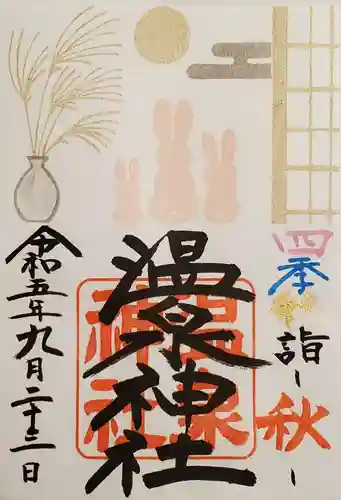 四季詣~秋~
温泉神社
温泉神社
令和五年九月二十三日